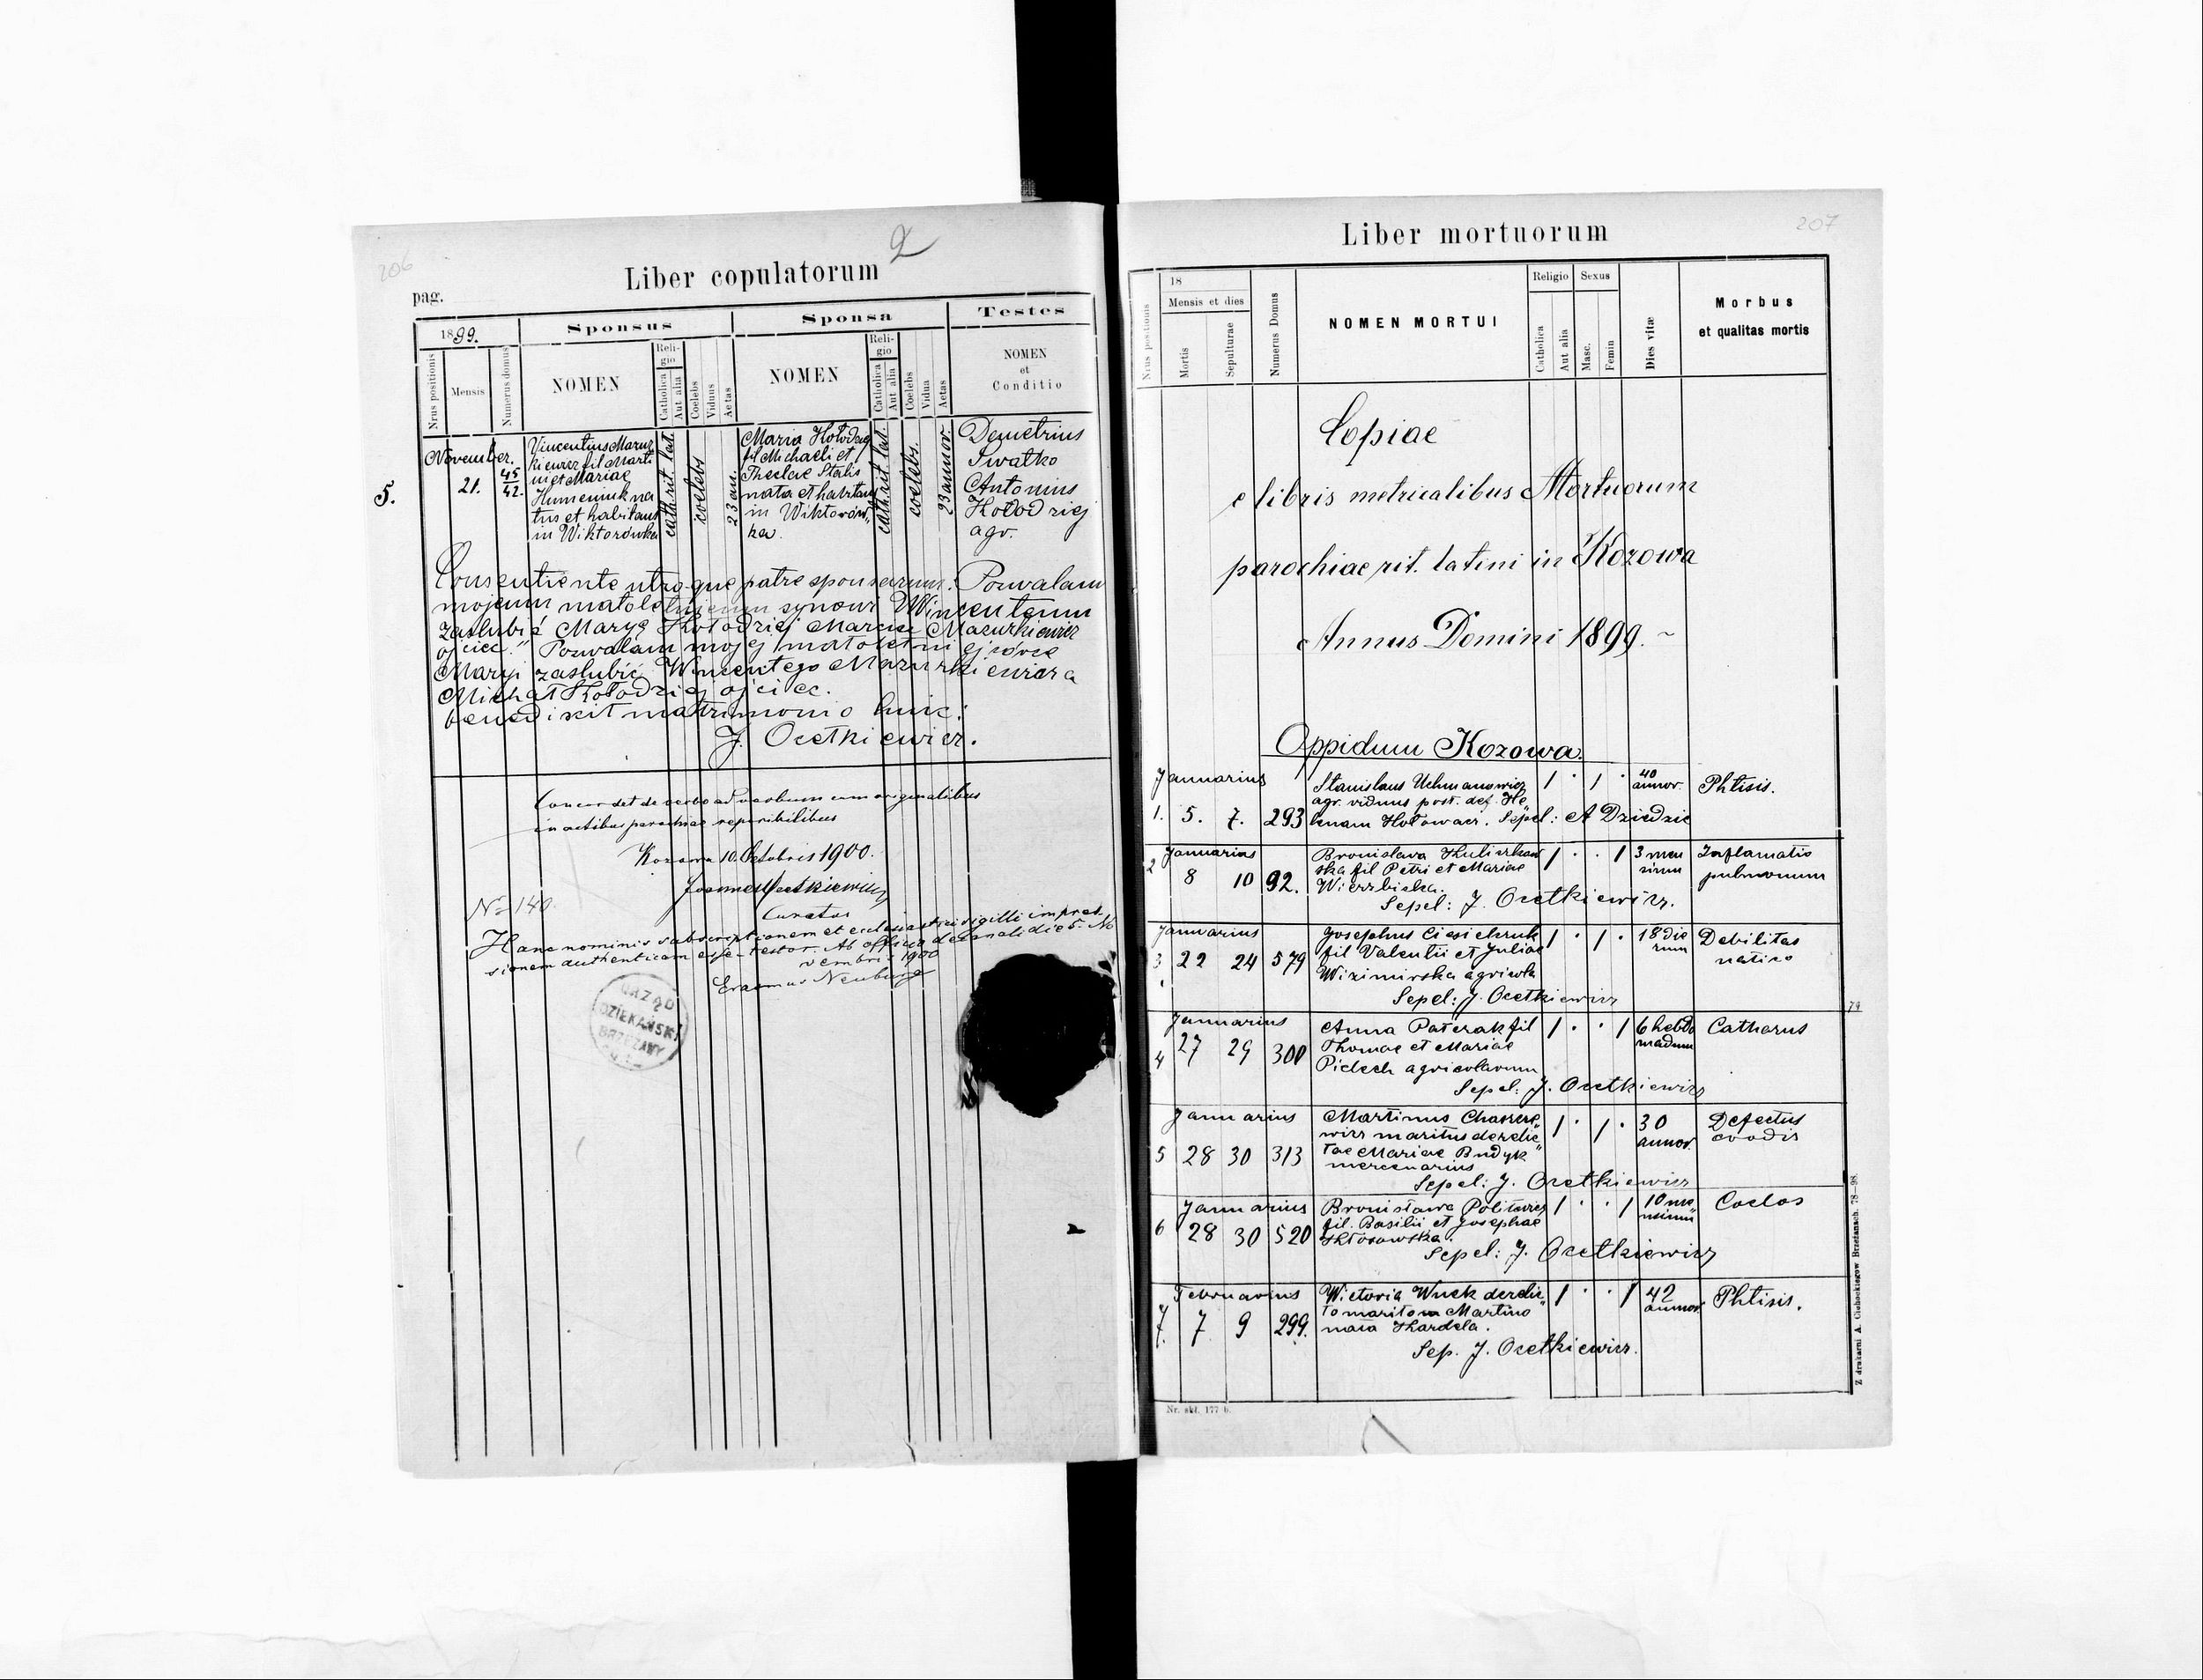 206
2
Liber copulatorum
pag.
1899.
Sponsus
Sponsa
Testes
Nrus positionis
Mensis
Numerus domus
NOMEN
Religio
Catholica
Aut alia
Coelebs
Viduus
Aetas
NOMEN
Religio
Catholica
Aut alia
Coelebs
Vidua
Aetas
NOMEN
et
Conditio
5.
November.
21.
45
42.
Vincentius Mazur
kiewicz fil Marti
ni et Mariae
Humeniuk na
tus et habitans
in Wiktorówka
cath. rit. lat.
coelebs
23 an.
Maria Hołodzej
fil Michaeli et
Theclae Stalis
nata et habitans
in Wiktorów„
ka.
cath. rit. lat.
coelebs.
23 annor.
Demetrius
Swatko
Antonius
Kołodziej
agr.
Consentiente utroque patre sponsarum: Pozwalam
mojemu małoletniemu synowi Wincentemu
zaślubić Maryę Kołodziej Marcin Mazurkiewicz
ojciec." Pozwalam mojej małoletniej córce
Maryi zaślubić Wincentego Mazurkiewicza
Michał Kołodziej ojciec.
benedixit matrimonio huic:
J. Ocetkiewicz.
Concordat de verbo ad verbum cum originalibus
in actibus parochiae reperibilibus
Kozowa 10. Octobris 1900.
Joannes Ocetkiewicz
Curatus
No 140.
Hanc nominis subscriptionem et ecclesiastici sigilli impres
sionem authenticam esse testor. Ab officio decanali die 5. No
vembris 1900
Erasmus Neuburg
URZĄD
DZIEKAŃSKI
BRZEŻANY
207
Liber mortuorum
Nrus positionis
18
Mensis et dies
Mortis
Sepulturae
Numerus Domus
NOMEN MORTUI
Religio
Catholica
Aut alia
Sexus
Masc.
Femin
Dies vitæ
Morbus
et qualitas mortis
Copiae
e libris metricalibus Mortuorum
parochiae rit. latini in Kozowa
Annus Domini 1899. ~
Oppidum Kozowa.
Januarius
1. 5. 7. 293
Stanislaus Uchmanowicz
agr. viduus post. def. He„
lenam Hołowacz. Sepel: A Dziedzic
1 · 1 ·
40
annor.
Phtisis.
Januarius
2 8 10 92.
Bronislava Kuliszkow
ska fil Petri et Mariae
Wierzbicka.
Sepel: J. Ocetkiewicz.
1 · · 1
3 men
sium
Inflamatio
pulmonum
Januarius
3 22 24 579
Josephus Ciesielczuk
fil Valentii et Juliae
Wizimirska agricola
Sepel: J. Ocetkiewicz
1 · 1 ·
18 die
rum
Debilitas
nativa
Januarius
4 27 29 300
Anna Paterak fil
Thomae et Mariae
Pielech agricolarum
Sepel: J. Ocetkiewicz
1 · · 1
6 hebdo
madum
Catharus
Januarius
5 28 30 313
Martinus Chaszcze„
wicz maritus derelic„
tae Mariae Budyk
mercenarius
Sepel: J. Ocetkiewicz
1 · 1 ·
30
annor.
Defectus
cordis
Januarius
6 28 30 520
Bronisława Politowicz
fil. Basilii et Josephae
Skłosowska.
Sepel: J. Ocetkiewicz
1 · · 1
10 me„
nsium
Februarius
7. 7 9 299.
Victoria Wuek derelic„
to marito Martino
nata Kardela.
Sep. J. Ocetkiewicz.
1 · · 1
42
annor.
Phtisis.
Nr. skł. 177 b.
Z drukarni A. Cichockiegow Brzeżanach. 78—98.